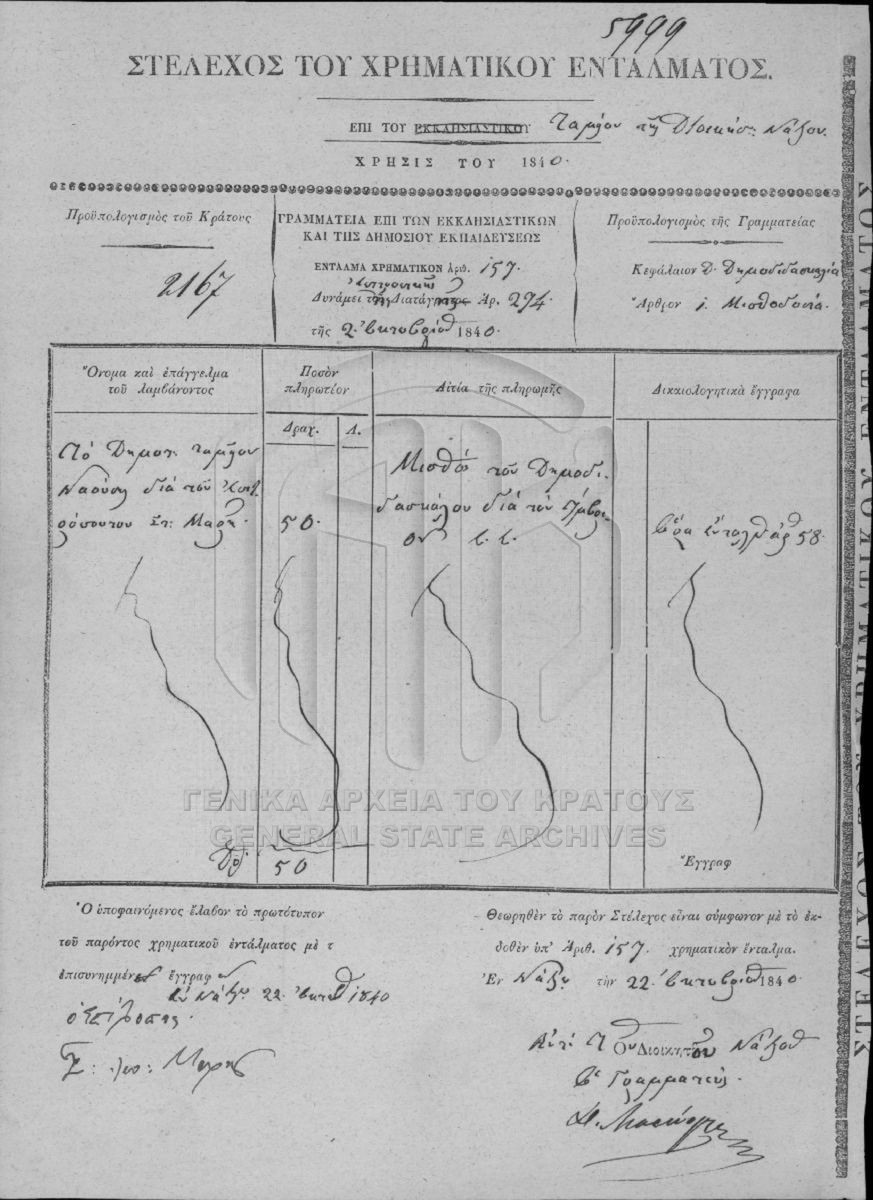 5999
ΣΤΕΛΕΧΟΣ ΤΟΥ ΧΡΗΜΑΤΙΚΟΥ ΕΝΤΑΛΜΑΤΟΣ.
ΕΠΙ ΤΟΥ ΕΚΚΛΗΣΙΑΣΤΙΚΟΥ Ταμείου τῆς Διοικήσ: Νάξου
ΧΡΗΣΙΣ ΤΟΥ 1840.
Προϋπολογισμὸς τοῦ Κράτους
2167
ΓΡΑΜΜΑΤΕΙΑ ΕΠΙ ΤΩΝ ΕΚΚΛΗΣΙΑΣΤΙΚΩΝ
ΚΑΙ ΤΗΣ ΔΗΜΟΣΙΟΥ ΕΚΠΑΙΔΕΥΣΕΩΣ
ΕΝΤΑΛΜΑ ΧΡΗΜΑΤΙΚΟΝ Ἀριθ. 157.
Δυνάμει τῆς Διατάγ Ἀρ. 294
τῆς 2 Ὀκτωβρίου 1840.
Προϋπολογισμὸς τῆς Γραμματείας
Κεφάλαιον Δ. Δημοδιδασκαλία
Ἄρθρον 1. Μισθοδοσία.
Ὄνομα καὶ ἐπάγγελμα
τοῦ λαμβάνοντος
Ποσὸν
πληρωτέον
Αἰτία τῆς πληρωμῆς
Δικαιολογητικὰ ἔγγραφα
Δραχ. Λ.
Τὸ Δημοτ: ταμεῖον
Ναούσης διὰ τὸν
50.
Μισθὸς τοῦ Δημοδι-
δασκάλου διὰ τὸν
58.
50
Ἔγγραφ
ΓΕΝΙΚΑ ΑΡΧΕΙΑ ΤΟΥ ΚΡΑΤΟΥΣ
GENERAL STATE ARCHIVES
Ὁ ὑποφαινόμενος ἔλαβον τὸ πρωτότυπον
τοῦ παρόντος χρηματικοῦ ἐντάλματος μὲ τ
ἐπισυνημμέν ἔγγραφ
Ἐν Νάξῳ 22 Ὀκτωβ 1840
Θεωρηθὲν τὸ παρὸν Στέλεχος εἶναι σύμφωνον μὲ τὸ ἐκ-
δοθὲν ὑπ' Ἀριθ. 157. χρηματικὸν ἔνταλμα.
Ἐν Νάξῳ τὴν 22 Ὀκτωβρίου 1840.
Ὁ Διοικητ Νάξου
Γραμματεύς.
ΣΤΕΛΕΧΟΣ ΤΟΥ ΧΡΗΜΑΤΙΚΟΥ ΕΝΤΑΛΜΑΤΟΣ